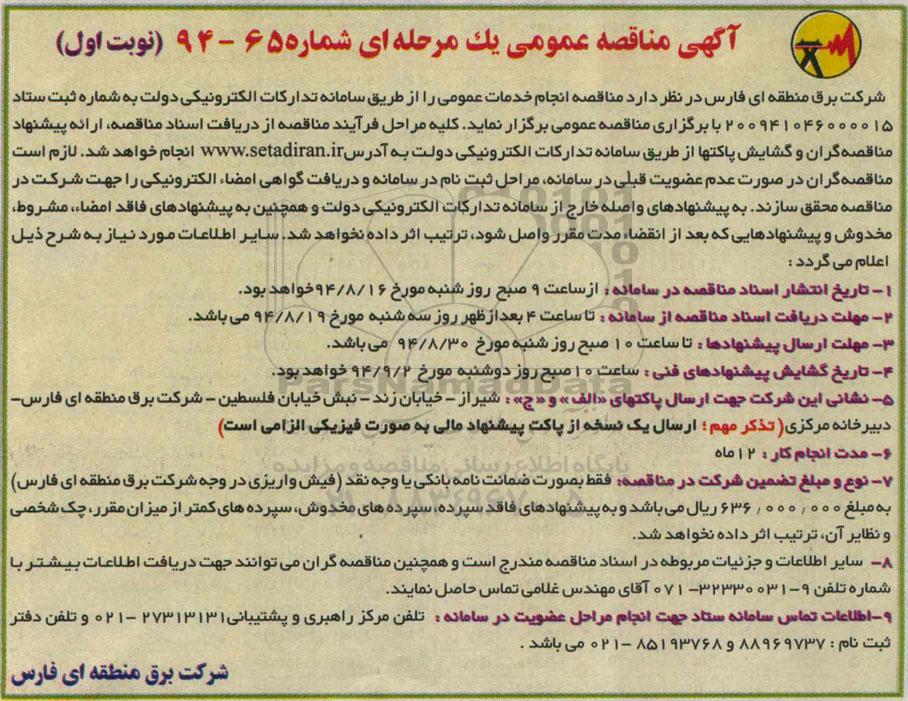 آگهی مناقصه عمومی یك مرحله ای شماره ۶۵ - ۹۴ (نوبت اول)
شرکت برق منطقه ای فارس در نظر دارد مناقصه انجام خدمات عمومی را از طریق سامانه تدارکات الکترونیکی دولت به شماره ثبت ستاد
۲۰۰۹۴۱۰۴۶۰۰۰۰۱۵ با برگزاری مناقصه عمومی برگزار نماید. کلیه مراحل فرآیند مناقصه از دریافت اسناد مناقصه، ارائه پیشنهاد
مناقصه‌گران و گشایش پاکتها از طریق سامانه تدارکات الکترونیکی دولت به آدرس www.setadiran.ir انجام خواهد شد. لازم است
مناقصه‌گران در صورت عدم عضویت قبلی در سامانه، مراحل ثبت نام در سامانه و دریافت گواهی امضاء الکترونیکی را جهت شرکت در
مناقصه محقق سازند. به پیشنهادهای واصله خارج از سامانه تدارکات الکترونیکی دولت و همچنین به پیشنهادهای فاقد امضاء، مشروط،
مخدوش و پیشنهادهایی که بعد از انقضاء مدت مقرر واصل شود، ترتیب اثر داده نخواهد شد. سایر اطلاعات مورد نیاز به شرح ذیل
اعلام می گردد :
۱- تاریخ انتشار اسناد مناقصه در سامانه : ازساعت ۹ صبح روز شنبه مورخ ۹۴/۸/۱۶ خواهد بود.
۲- مهلت دریافت اسناد مناقصه از سامانه : تا ساعت ۴ بعدازظهر روز سه شنبه مورخ ۹۴/۸/۱۹ می باشد.
۳- مهلت ارسال پیشنهادها : تا ساعت ۱۰ صبح روز شنبه مورخ ۹۴/۸/۳۰ می باشد.
۴- تاریخ گشایش پیشنهادهای فنی : ساعت ۱۰ صبح روز دوشنبه مورخ ۹۴/۹/۲ خواهد بود.
۵- نشانی این شرکت جهت ارسال پاکتهای «الف» و «ج» : شیراز - خیابان زند - نبش خیابان فلسطین - شرکت برق منطقه ای فارس-
دبیرخانه مرکزی (تذکر مهم ؛ ارسال یک نسخه از پاکت پیشنهاد مالی به صورت فیزیکی الزامی است)
۶- مدت انجام کار : ۱۲ماه
۷- نوع و مبلغ تضمین شرکت در مناقصه: فقط بصورت ضمانت نامه بانکی یا وجه نقد (فیش واریزی در وجه شرکت برق منطقه ای فارس)
به مبلغ ۶۳۶٫۰۰۰٫۰۰۰ ریال می باشد و به پیشنهادهای فاقد سپرده، سپرده های مخدوش، سپرده های کمتر از میزان مقرر، چک شخصی
و نظایر آن، ترتیب اثر داده نخواهد شد.
۸- سایر اطلاعات و جزئیات مربوطه در اسناد مناقصه مندرج است و همچنین مناقصه گران می توانند جهت دریافت اطلاعات بیشتر با
شماره تلفن ۹-۳۲۳۳۰۰۳۱- ۰۷۱ آقای مهندس غلامی تماس حاصل نمایند.
۹-اطلاعات تماس سامانه ستاد جهت انجام مراحل عضویت در سامانه : تلفن مرکز راهبری و پشتیبانی ۲۷۳۱۳۱۳۱ -۰۲۱ و تلفن دفتر
ثبت نام : ۸۸۹۶۹۷۳۷ و ۸۵۱۹۳۷۶۸ -۰۲۱ می باشد .
شرکت برق منطقه ای فارس
ParsNamadData
پایگاه اطلاع رسانی مناقصه و مزایده